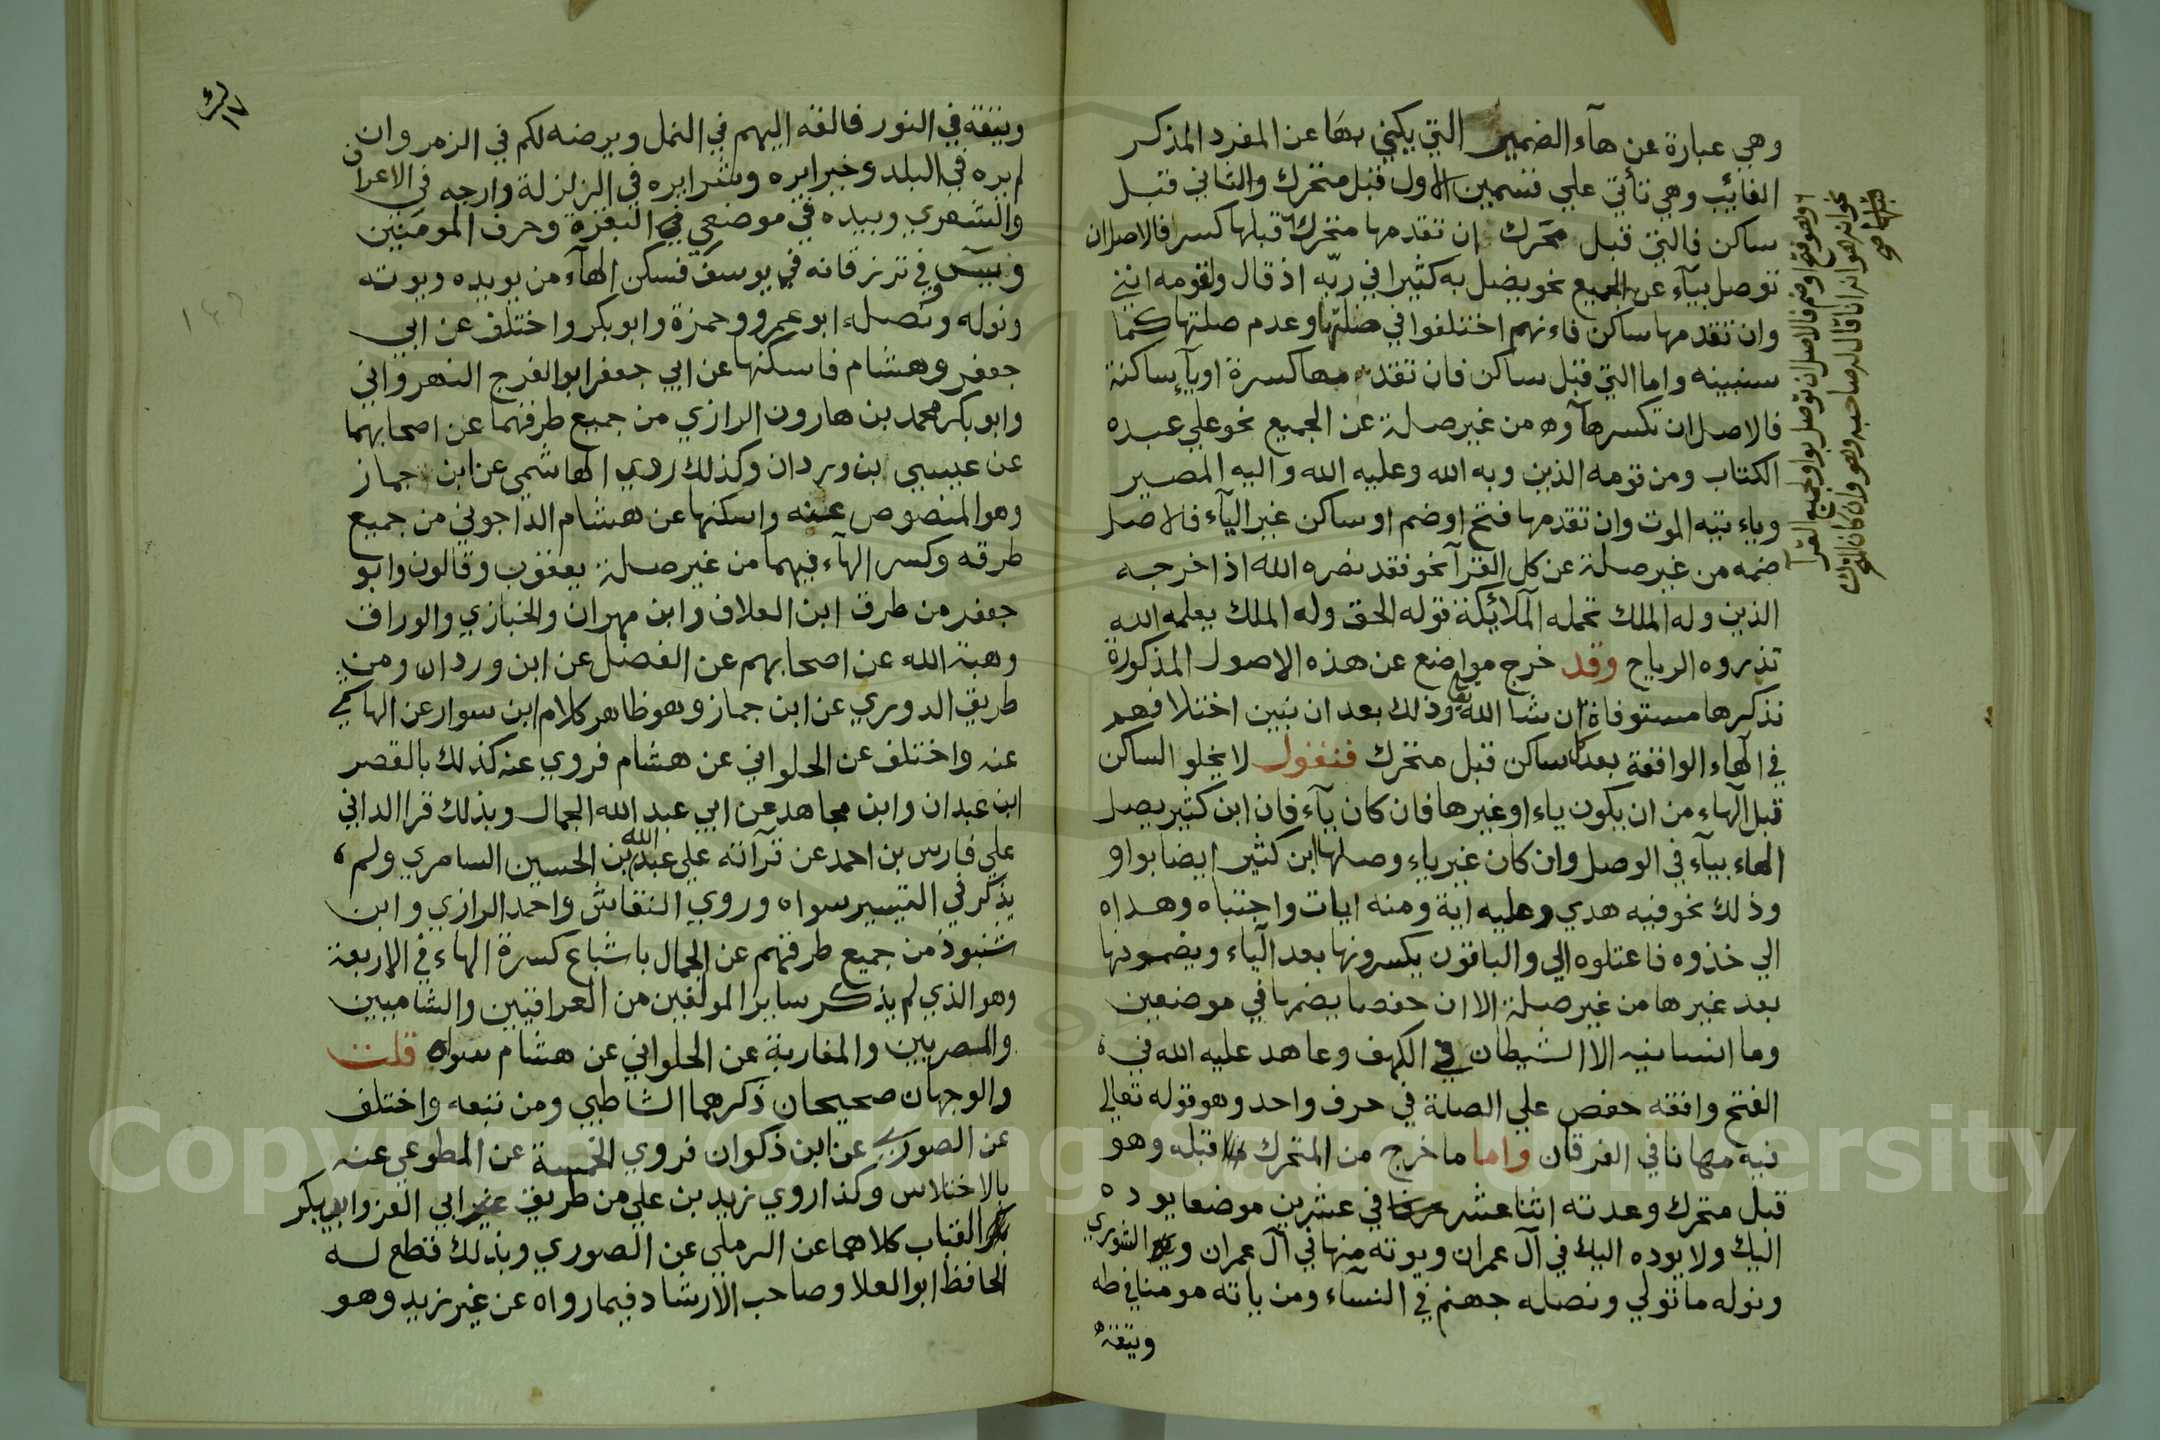 وهي عبارة عن هآء الضمير التي يكني بها عن المفرد المذكر
الغائب وهي تأتي علي قسمين الاول قبل متحرك والثاني قبل
ساكن فالتي قبل متحرك ان تقدمها متحرك قبلها كسر فالاصل ان
توصل بيآء عن الجميع نحو يضل به كثيرا في ربه اذ قال ولقومه انني
وان تقدمها ساكن فاءنهم اختلفوا في صلتها وعدم صلتها كما
سنبينه واما التي قبل ساكن فان تقدمها كسرة او يآء ساكنة
فالاصل ان تكسر هآوه من غير صلة عن الجميع نحو علي عبده
الكتاب ومن قومه الذين وبه الله وعليه الله واليه المصير
وياءتيه الموت وان تقدمها فتح او ضم او ساكن غير اليآء فالاصل
ضمه من غير صلة عن كل القرآ نحو فقد نصره الله اذ اخرجه
الذين وله الملك تحمله الملائكة قوله الحق وله الملك يعلمه الله
تذروه الرياح وقد خرج مواضع عن هذه الاصول المذكورة
نذكرها مستوفاة ان شا الله تع وذلك بعد ان نبين اختلافهم
في الهاء الواقعة بعد ساكن قبل متحرك فنقول لا يخلو الساكن
قبل الهاء من ان يكون ياء او غيرها فان كان يآء فان ابن كثير يصل
الهاء بيآء في الوصل وان كان غير ياء وصلها ابن كثير ايضا بواو
وذلك نحو فيه هدي وعليه اية ومنه ايات واجتباه وهداه
الي خذوه فاعتلوه الي والباقون يكسرونها بعد الياء ويضمونها
بعد غيرها من غير صلة الا ان حفصا يضمها في موضعين
وما انسانيه الا الشيطان في الكهف وعاهد عليه الله في
الفتح وافقه حفص علي الصلة في حرف واحد وهو قوله تعالي
فيه مهانا في الفرقان واما ما خرج من المتحرك قبله وهو
قبل متحرك وعدته اثنا عشر حرفا في عشرين موضعا يوده
اليك ولا يوده اليك في آل عمران ويوته منها في آل عمران والشوري
ونوله ما تولي ونصله جهنم في النسآء ومن ياته مومنا في طه
ويتقه
وهو فتح او ضم فالاصل ان توصل بواو لجميع القرآ
نحو انه هو انه انا قال له صاحبه وهو وان كان المتحرك
قبلها صح
١٧
ويتقه في النور فالقه اليهم في النمل ويرضه لكم في الزمر وان
لم يره في البلد وخيرا يره وشرا يره في الزلزلة وارجه في الاعراف
والشعري وبيده في موضعي في البقرة وحرف المومنين
ويس في ترزقانه في يوسف فسكن الهآء من يويده ويوته
ونوله ونصله ابو عمرو وحمزة وابو بكر واختلف عن ابي
جعفر وهشام فاسكنها عن ابي جعفر ابو الفرج النهرواني
وابو بكر محمد بن هارون الرازي من جميع طرقهما عن اصحابهما
عن عيسي ابن وردان وكذلك روي الهاشمي عن ابن جماز
وهو المنصوص عنه واسكنها عن هشام الداجوني من جميع
طرقه وكسر الهآء فيهما من غير صلة يعقوب وقالون وابو
جعفر من طرق ابن العلاف وابن مهران والخبازي والوراق
وهبة الله عن اصحابهم عن الفضل عن ابن وردان ومن
طريق الدوري عن ابن جماز وهو ظاهر كلام ابن سوار عن الهاشمي
عنه واختلف عن الحلواني عن هشام فروي عنه كذلك بالقصر
ابن عبدان وابن مجاهد عن ابي عبد الله الجمال وبذلك قرا الداني
علي فارس بن احمد عن قرآته علي عبد الله بن الحسين السامري ولم
يذكر في التيسير سواه وروي النقاش واحمد الرازي وابن
شنبوذ من جميع طرقهم عن الجمال باشباع كسرة الهاء في الاربعة
وهو الذي لم يذكر ساير المولفين من العراقيين والشاميين
والمصريين والمغاربة عن الحلواني عن هشام سواه قلت
والوجهان صحيحان ذكرهما الشاطبي ومن تبعه واختلف
عن الصوري عن ابن ذكوان فروي الخمسة عن المطوعي عنه
بالاختلاس وكذا روي زيد بن علي من طريق غير ابي العز وابو بكر
القباب كلاهما عن الرملي عن الصوري وبذلك قطع له
الحافظ ابو العلا وصاحب الارشاد فيما رواه عن غير زيد وهو
Copyright © King Saud University